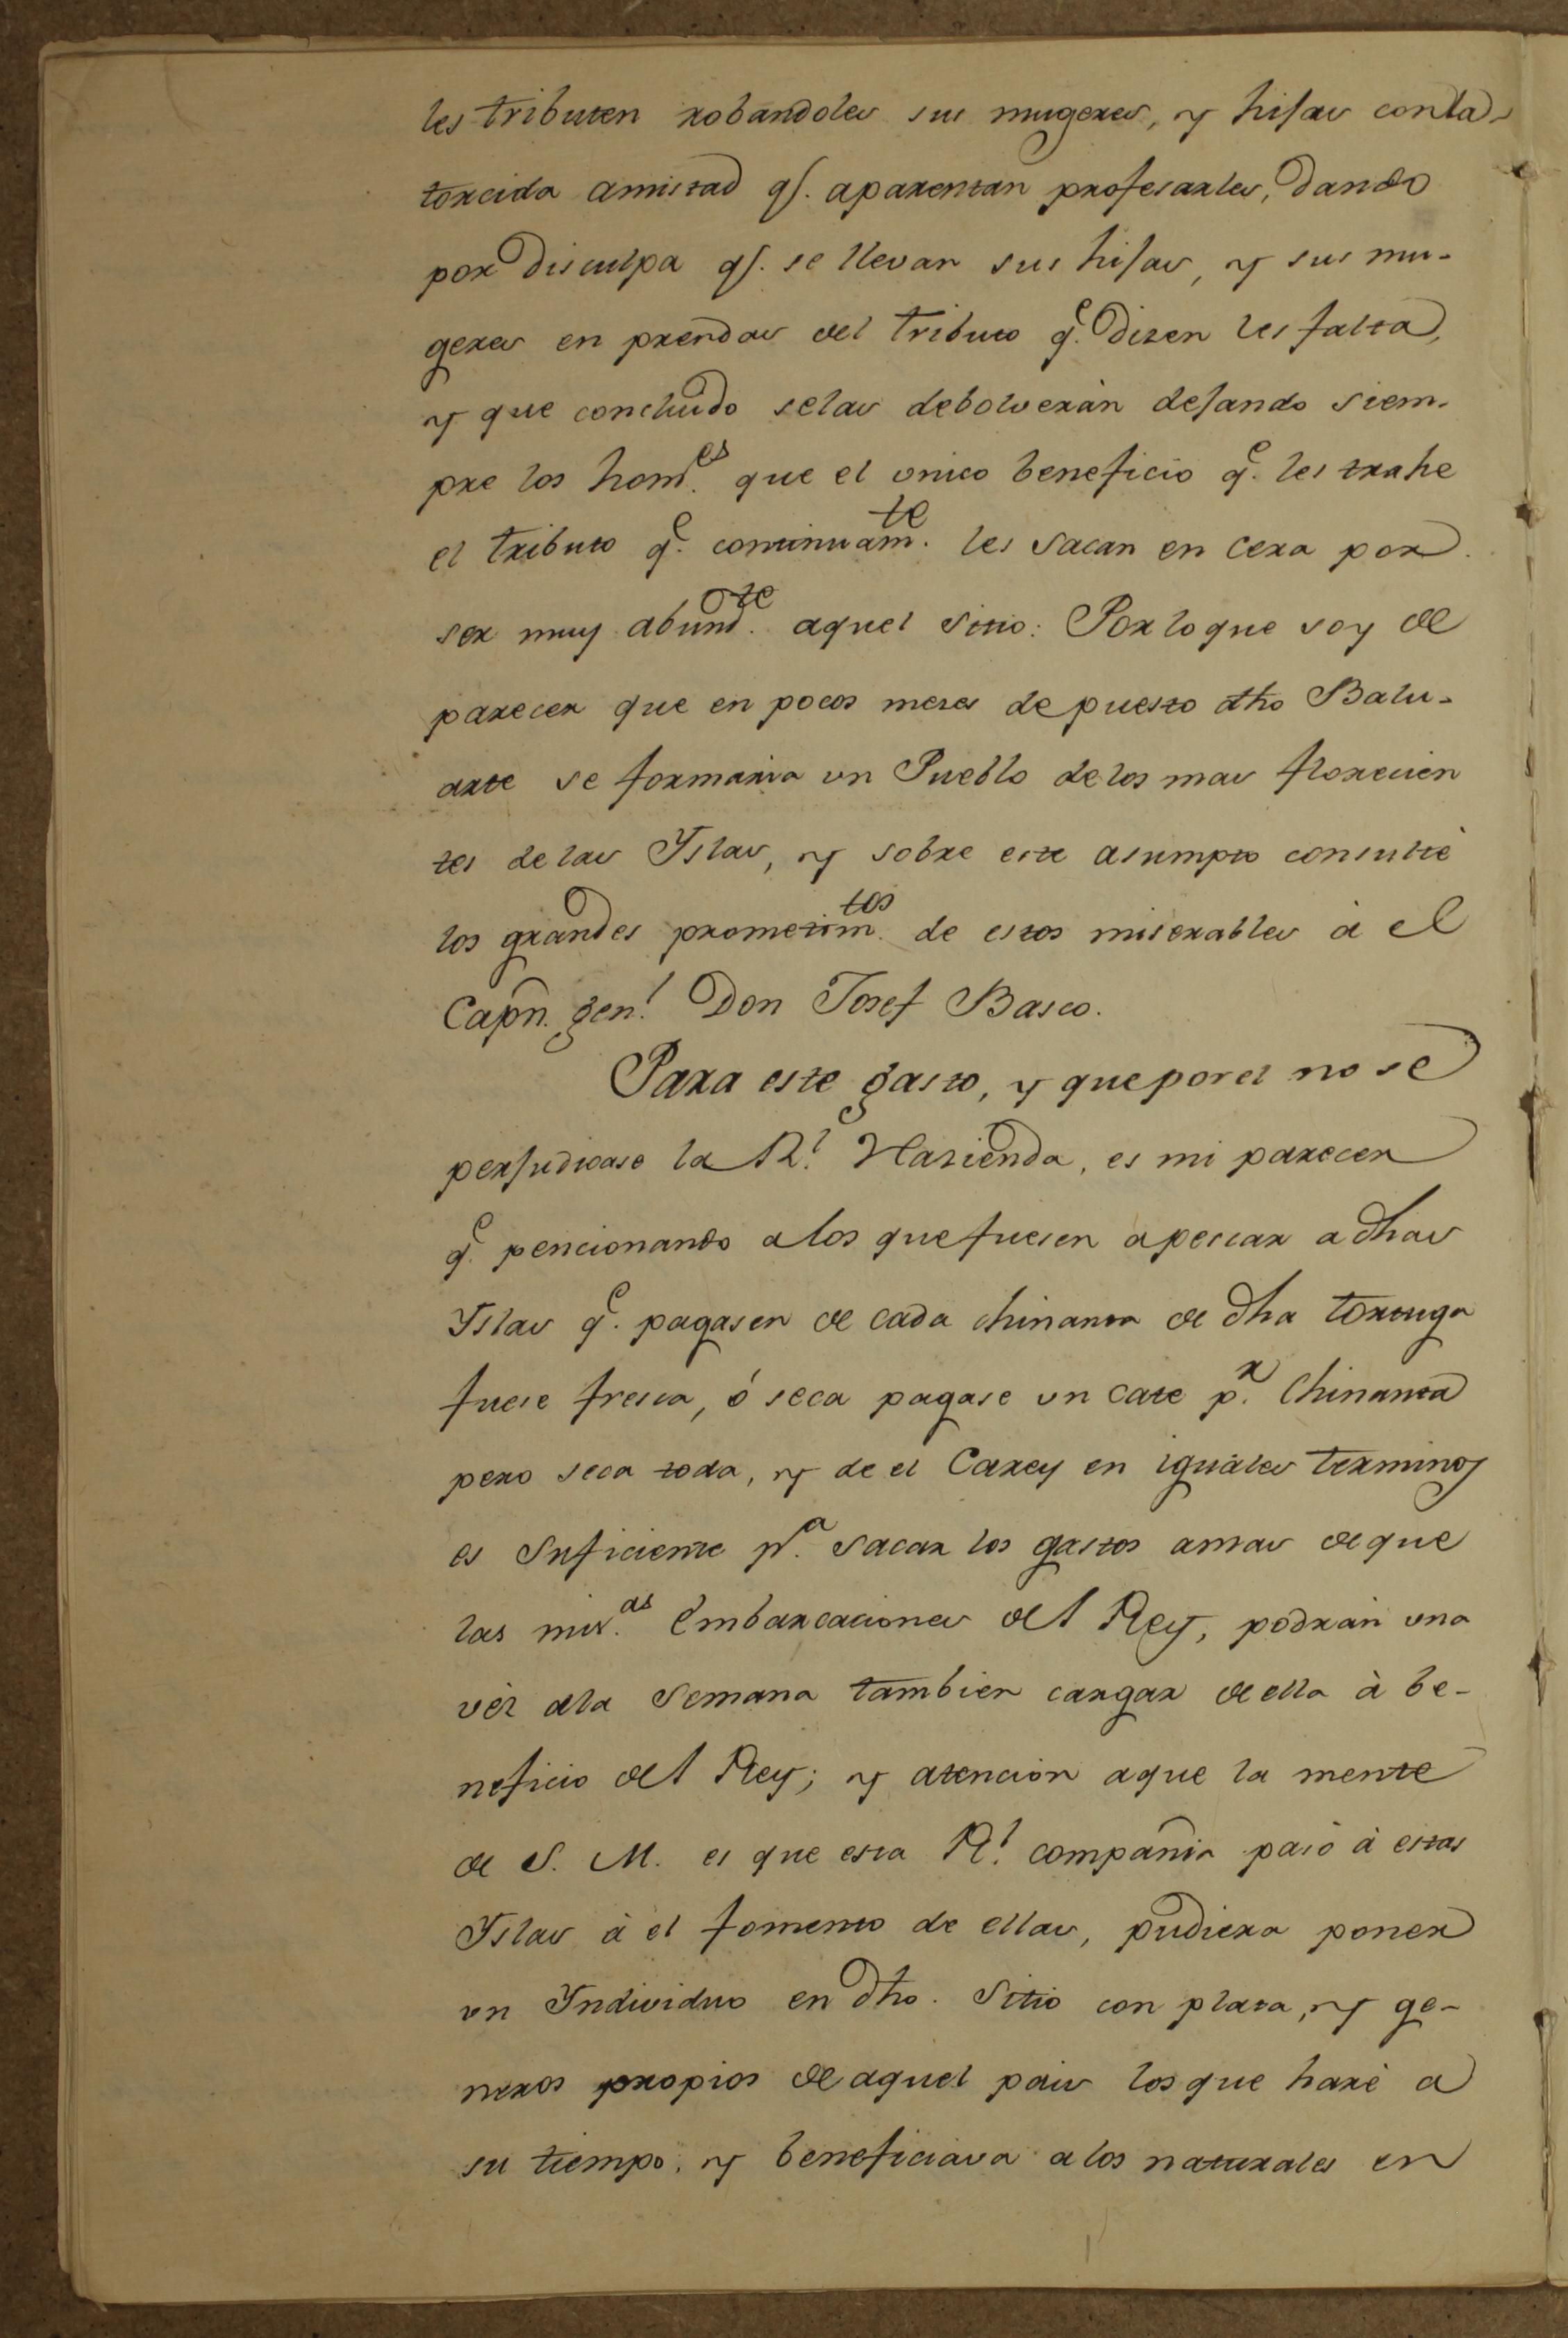 les tributen robandoles sus mugeres, y hijas con la
torcida amistad q͂. aparentan profesarles, dando
por disculpa q͂. se llevan sus hijas, y sus mu-
geres en prendas del tributo q.^e dizen les falta,
y que concluido selas debolveràn dejando siem-
pre los hom.^es que el unico beneficio q.^e les trahe
el tributo q.^e continuam.^te les sacan en cera por
ser muy abund.^te aquel sitio: Por lo que soy de
parecer que en pocos meses de puesto dho Balu-
arte se formaria un Pueblo de los mas florecien
tes de las Yslas, y sobre este asumpto consultè
los grandes prometim.^tos de estos miserables à el
Capn. gen.^l Don Josef Basco.
Para este gasto, y que por el no se
perjudicase la R.^l Hazienda, es mi parecer
q.^e pencionando a los que fuesen a pescar a dhas
Yslas q.^e pagasen de cada chinanta de dha tortuga
fuese fresca, ó seca pagase un cate p.^r Chinanta
pero seca toda, y de el Carey en iguales terminos
es suficiente p.^a sacar los gastos amas de que
las mis.^as Embarcaciones del Rey, podràn una
vèz ala Semana tambien cargar de ella à be-
neficio del Rey; y atencion a que la mente
de S. M. es que esta R.^l compañia pasò à estas
Yslas à el fomento de ellas, pudiera poner
un Individuo en dho. Sitio con plata, y ge-
neros propios de aquel pais los que harè a
su tiempo, y beneficiava a los naturales en